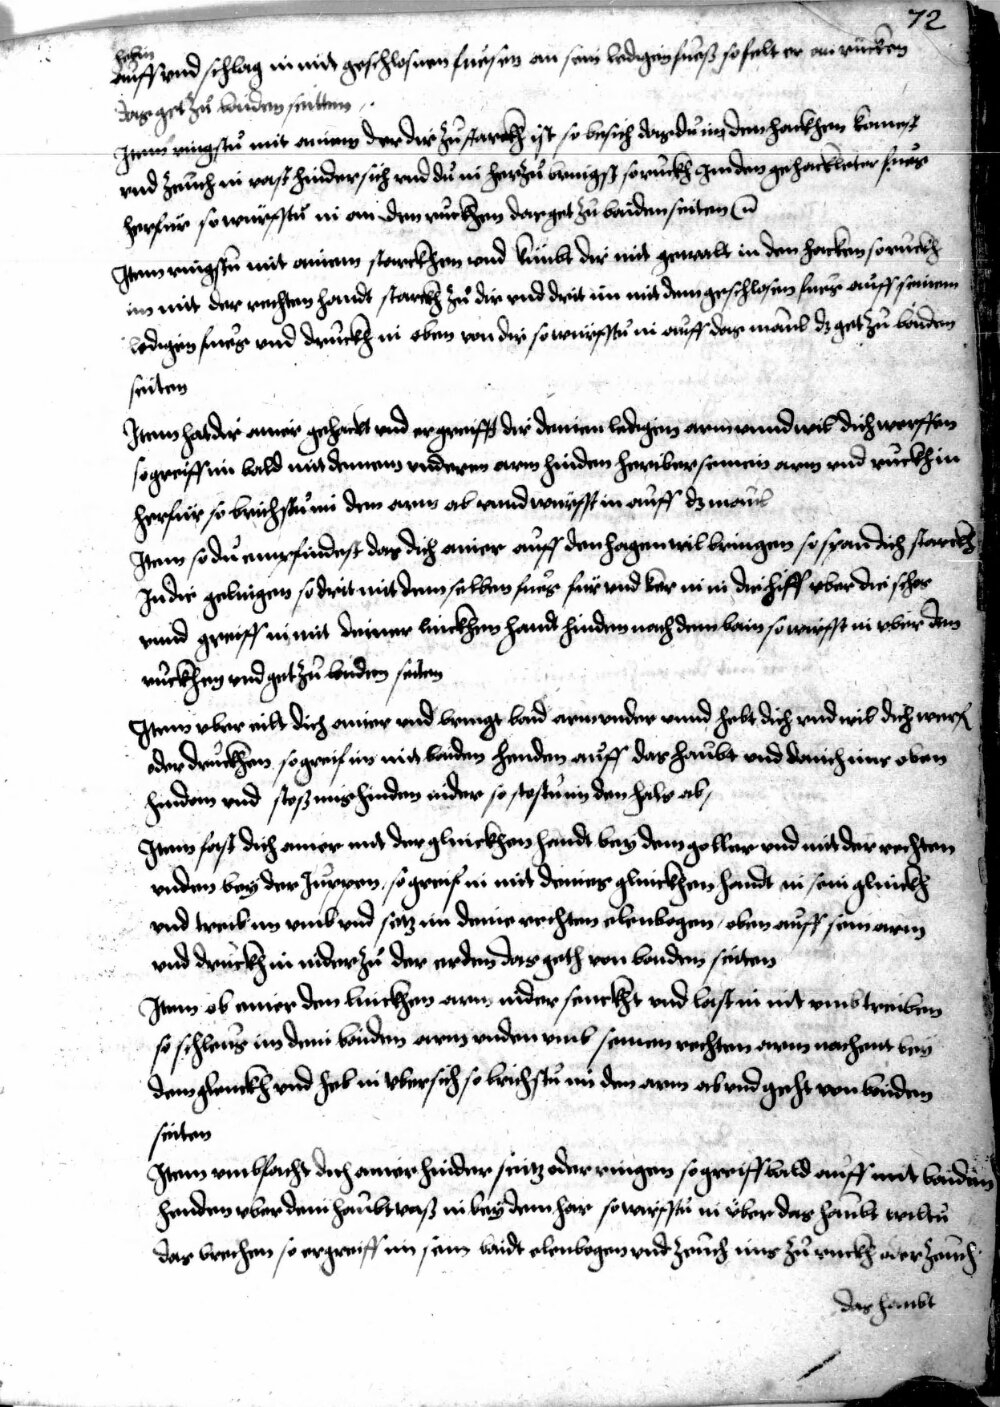 72
hebin
auff vnd schlag in mit geschlosnen fuesen an sein ledigen fues so felt er an rücken
das get zů baiden seitten
Item ringstu mit ainem der dir zů starckh ist so besich das du im den hackhen komest
vnd zeuch in vast hindersich vnd du in herzů bringst so ruckh In den gehackleter fues
herfür so würffstu in an den ruckhen das get zů baiden seiten
Item ringstu mit ainem starckhen vnd kumbt dir mit gewalt in den hacken so ruckh
im mit der rechten handt starckh zů dir vnd drit im mit dem geschlosen fues auff seinem
ledigen fues vnd druckh in oben von dir so würffstu in auff das maul dz get zů baiden
seiten
Item hat dir ainer gehackt vnd ergreifft dir deinen ledigen arm vnnd wil dich werffen
so greiff im bald mit deinem vnderen arm hinden heriber seinen arm vnd ruckh in
herfür so brichstu im den arm ab vnnd würffst in auff dz maul
Item so du empfindest das dich ainer auff den hagen wil bringen so span dich starckh
In die gelingen so drit mit dem selben fues für vnd ker in in die hüff vber die schos
vnnd greiff in mit deiner linckhen handt hinden nach dem bain so würfst in vber den
ruckhen vnd get zů baiden seiten
Item vber eilt dich ainer vnd bringt baid arm vnder vnnd hebt dich vnd wil dich werff
oder druckhen so greif im mit baiden henden auff das haubt vnd dauch ims oben
hinden vnd stoß ims hinden nider so stostu im den hals ab
Item fast dich ainer mit der glinckhen handt bey dem goller vnd mit der rechten
vnden bey der Juppen so greif in mit deiner glinckhen handt in sein glinckh
vnd treib im vmb vnd setz im deine rechten elenbogen oben auff sein arm
vnd druckh in nider zů der erden das geth von baiden seiten
Item ob ainer den linckhen arm nider senckht vnd last in nit vmb treiben
so schleus im dein baiden arm vnden vmb seinen rechten arm nachent bey
dem glenckh vnd heb in vbersich so brichstu im den arm ab vnd geht von baiden
seiten
Item vmbfacht dich ainer hinder seitz oder ringen so greiff bald auff mit baiden
henden vber dein haubt vaß in bey dem har so wirffstu in vber das haubt wiltu
das brechen so ergreiff im sein baidt elenbogen vnd zeuch ims zů ruckh oder zeuch
das haubt